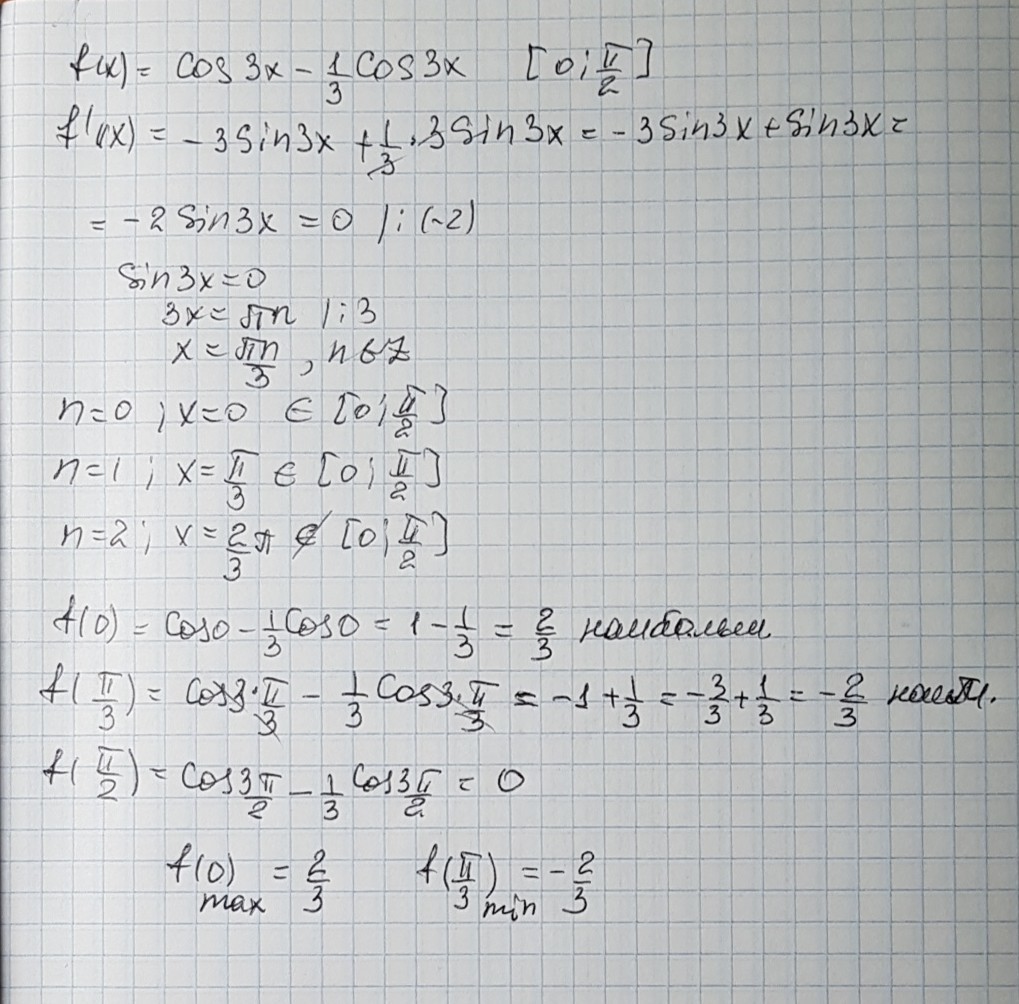 f(x) = cos 3x - 1/3 cos 3x [0; π/2]
f'(x) = -3 sin 3x + 1/3 · 3 sin 3x = -3 sin 3x + sin 3x =
= -2 sin 3x = 0 /: (-2)
sin 3x = 0
3x = πn /: 3
x = πn/3, n ∈ Z
n=0; x=0 ∈ [0; π/2]
n=1; x = π/3 ∈ [0; π/2]
n=2; x = 2/3 π ∉ [0; π/2]
f(0) = cos 0 - 1/3 cos 0 = 1 - 1/3 = 2/3 наибольш.
f(π/3) = cos 3·π/3 - 1/3 cos 3·π/3 = -1 + 1/3 = -3/3 + 1/3 = -2/3
f(π/2) = cos 3π/2 - 1/3 cos 3π/2 = 0
f(0) max = 2/3 f(π/3) min = -2/3